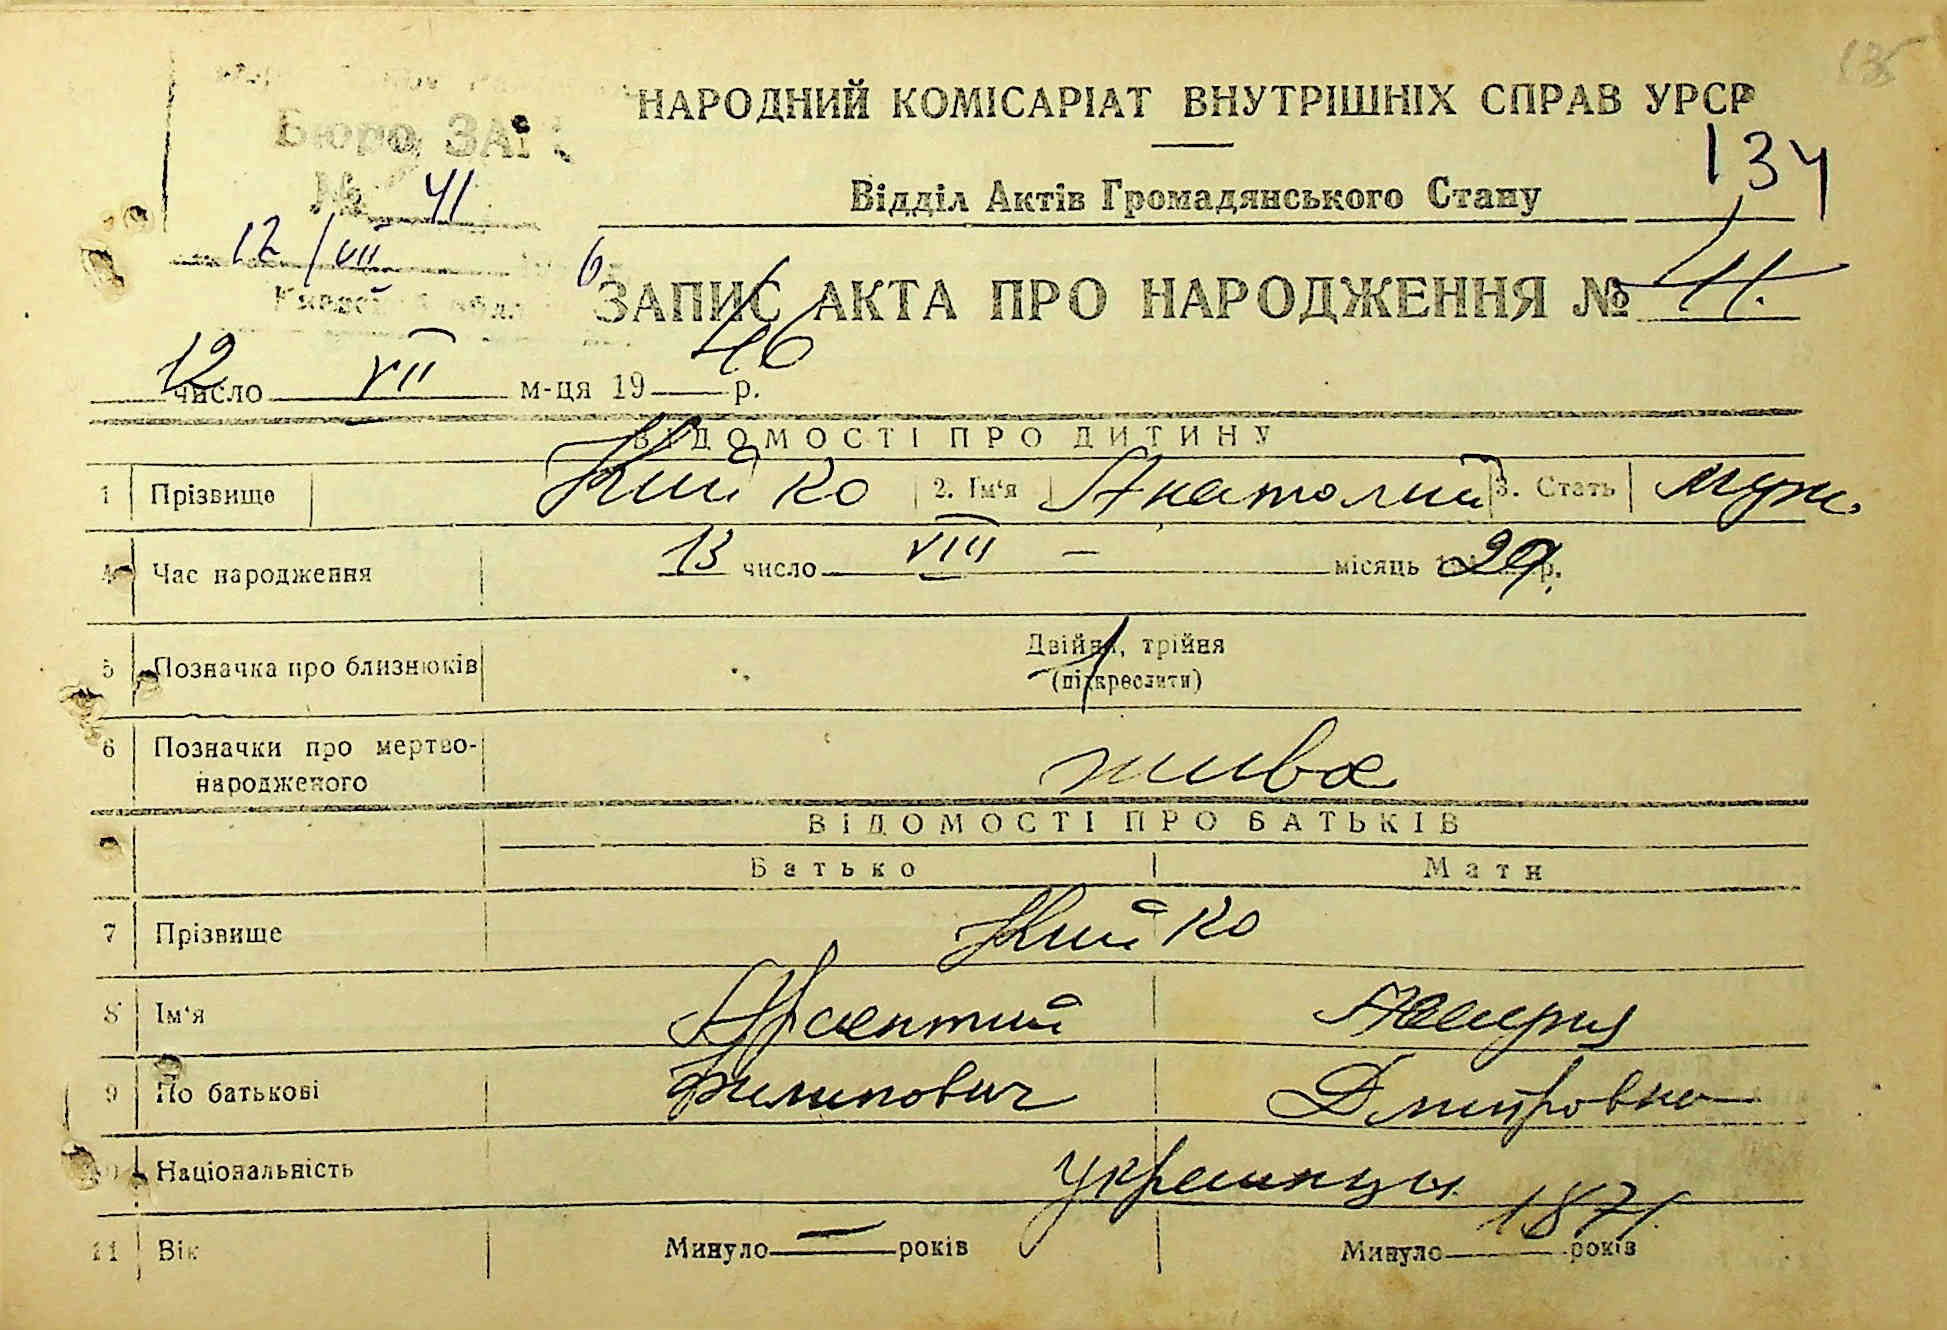 135
НАРОДНИЙ КОМІСАРІАТ ВНУТРІШНІХ СПРАВ УРСР
134
Бюро ЗАГС
№ 41
Відділ Актів Громадянського Стану
12/VII 6
ЗАПИС АКТА ПРО НАРОДЖЕННЯ № 41.
12 число VII м-ця 19 46 р.
ВІДОМОСТІ ПРО ДИТИНУ
1 Прізвище Кийко 2. Ім'я Анатолий 3. Стать муж.
4 Час народження 13 число VIII — місяць 29 р.
5 Позначка про близнюків Двійня, трійня
(підкреслити) 1
6 Позначки про мертво-
народженого жива
ВІДОМОСТІ ПРО БАТЬКІВ
Батько Мати
7 Прізвище Кийко
8 Ім'я Арсентий Мария
9 По батькові Филипович Дмитровна
10 Національність украинцы
11 Вік Минуло — років Минуло 1871 років